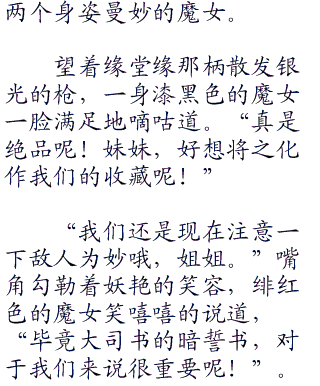 两个身姿曼妙的魔女。
望着缘堂缘那柄散发银
光的枪，一身漆黑色的魔女
一脸满足地嘀咕道。“真是
绝品呢！妹妹，好想将之化
作我们的收藏呢！”
“我们还是现在注意一
下敌人为妙哦，姐姐。”嘴
角勾勒着妖艳的笑容，绯红
色的魔女笑嘻嘻的说道，
“毕竟大司书的暗誓书，对
于我们来说很重要呢！”。